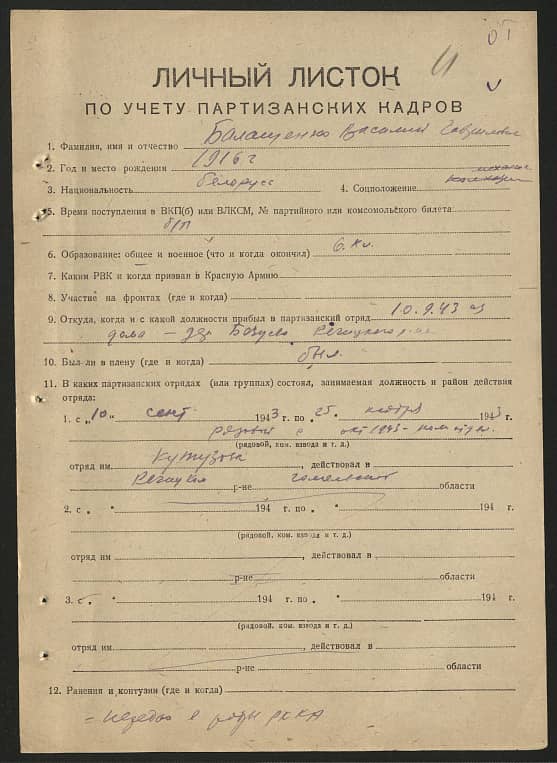 ЛИЧНЫЙ ЛИСТОК
ПО УЧЕТУ ПАРТИЗАНСКИХ КАДРОВ
1. Фамилия, имя и отчество Балащенко Василий
2. Год и место рождения 1916 г
3. Национальность белорусс 4. Соцположение
5. Время поступления в ВКП(б) или ВЛКСМ, № партийного или комсомольского билета
б/п
6. Образование: общее и военное (что и когда окончил) 6. кл.
7. Каким РВК и когда призван в Красную Армию
8. Участие на фронтах (где и когда)
9. Откуда, когда и с какой должности прибыл в партизанский отряд 10.9.43 из
дома — дер Речицкого р-на
10. Был-ли в плену (где и когда) был
11. В каких партизанских отрядах (или группах) состоял, занимаемая должность и район действия
отряда:
1. с „10„ сент 1943 г. по „25„ ноября 1943 г.
рядовой с окт 1943 -
(рядовой, ком. взвода и т. д.)
отряд им Кутузова, действовал в
Речицком р-не Гомельской области
2. с „ “ 194 г. по „ “ 194 г.
(рядовой, ком. взвода и т. д.)
отряд им , действовал в
р-не области
3. с „ “ 194 г. по „ “ 194 г.
(рядовой, ком. взвода и т. д.)
отряд им , действовал в
р-не области
12. Ранения и контузии (где и когда)
= в ряды РККА